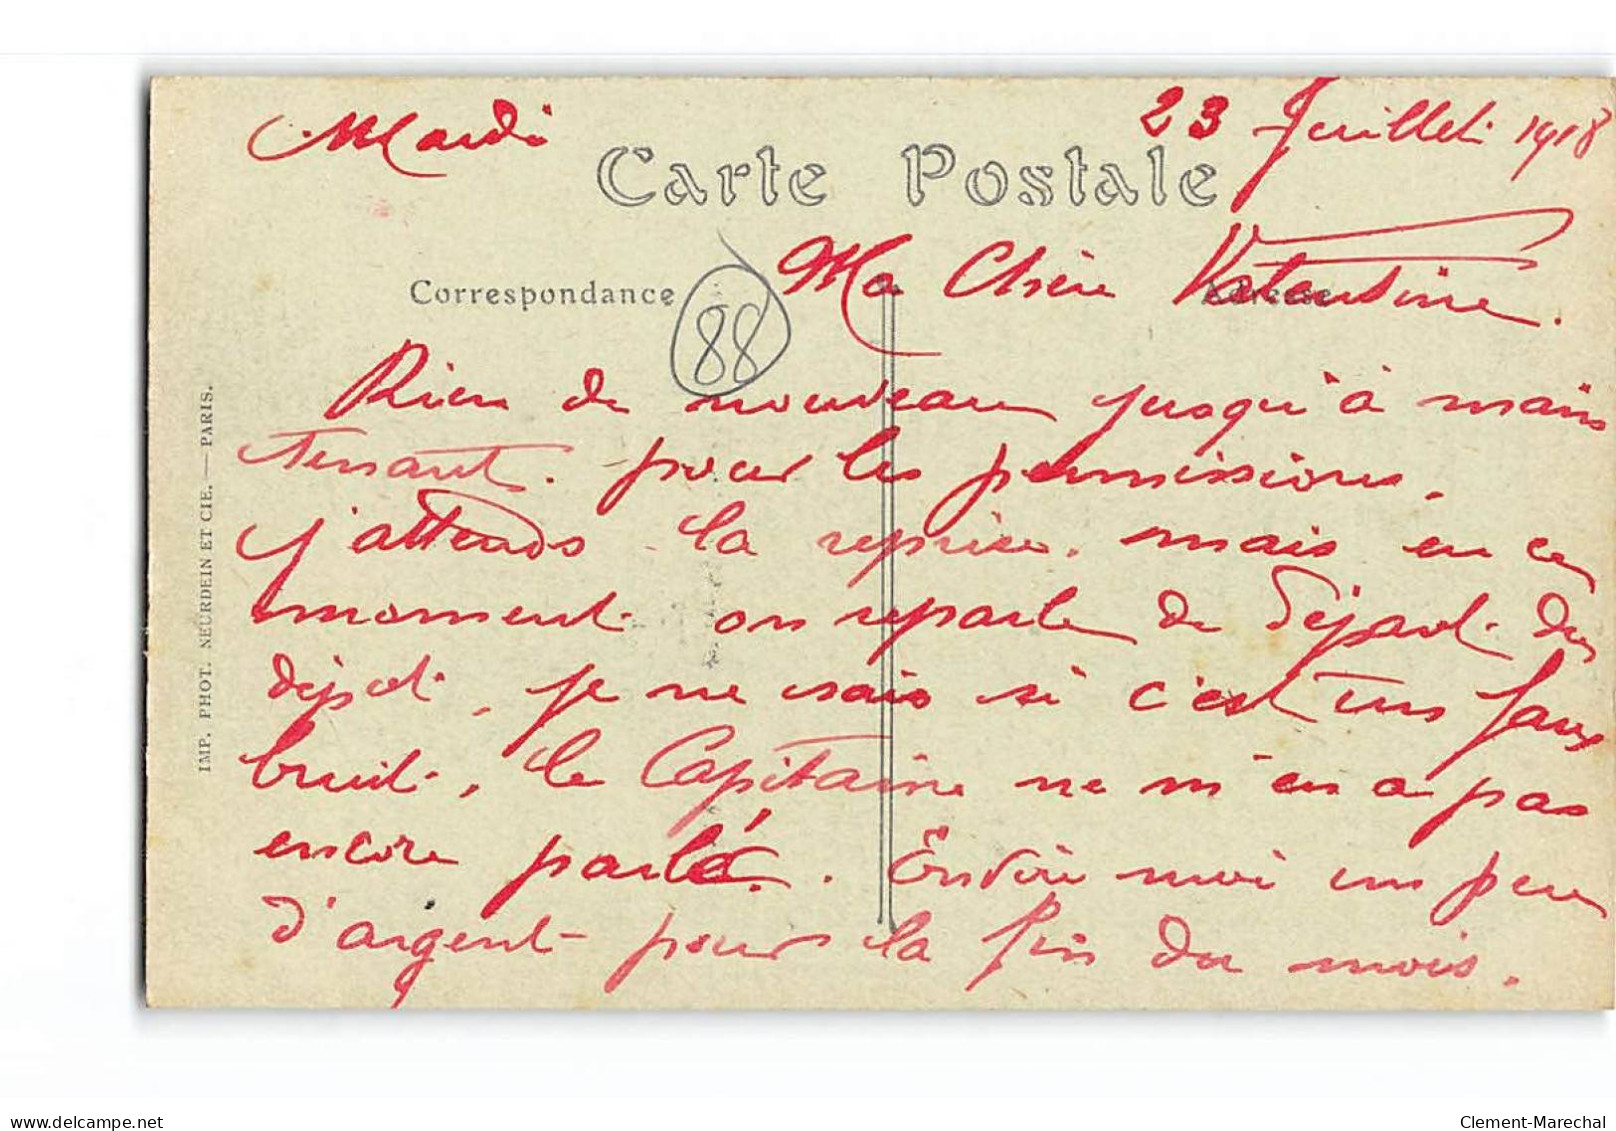 Mardi 23 Juillet 1918
Carte Postale
Correspondance
Adresse
88
Ma Chère Valentine.
Rien de nouveau jusqu'à main
tenant. pour les permissions.
j'attends la reprise. mais en ce
moment on reparle de Départ du
dépot, je ne sais si c'est un faux
bruit, le Capitaine ne m'en a pas
encore parlé. Envoie moi un peu
d'argent pour la fin du mois.
IMP. PHOT. NEURDEIN ET CIE. — PARIS.
delcampe.net
Clement-Marechal